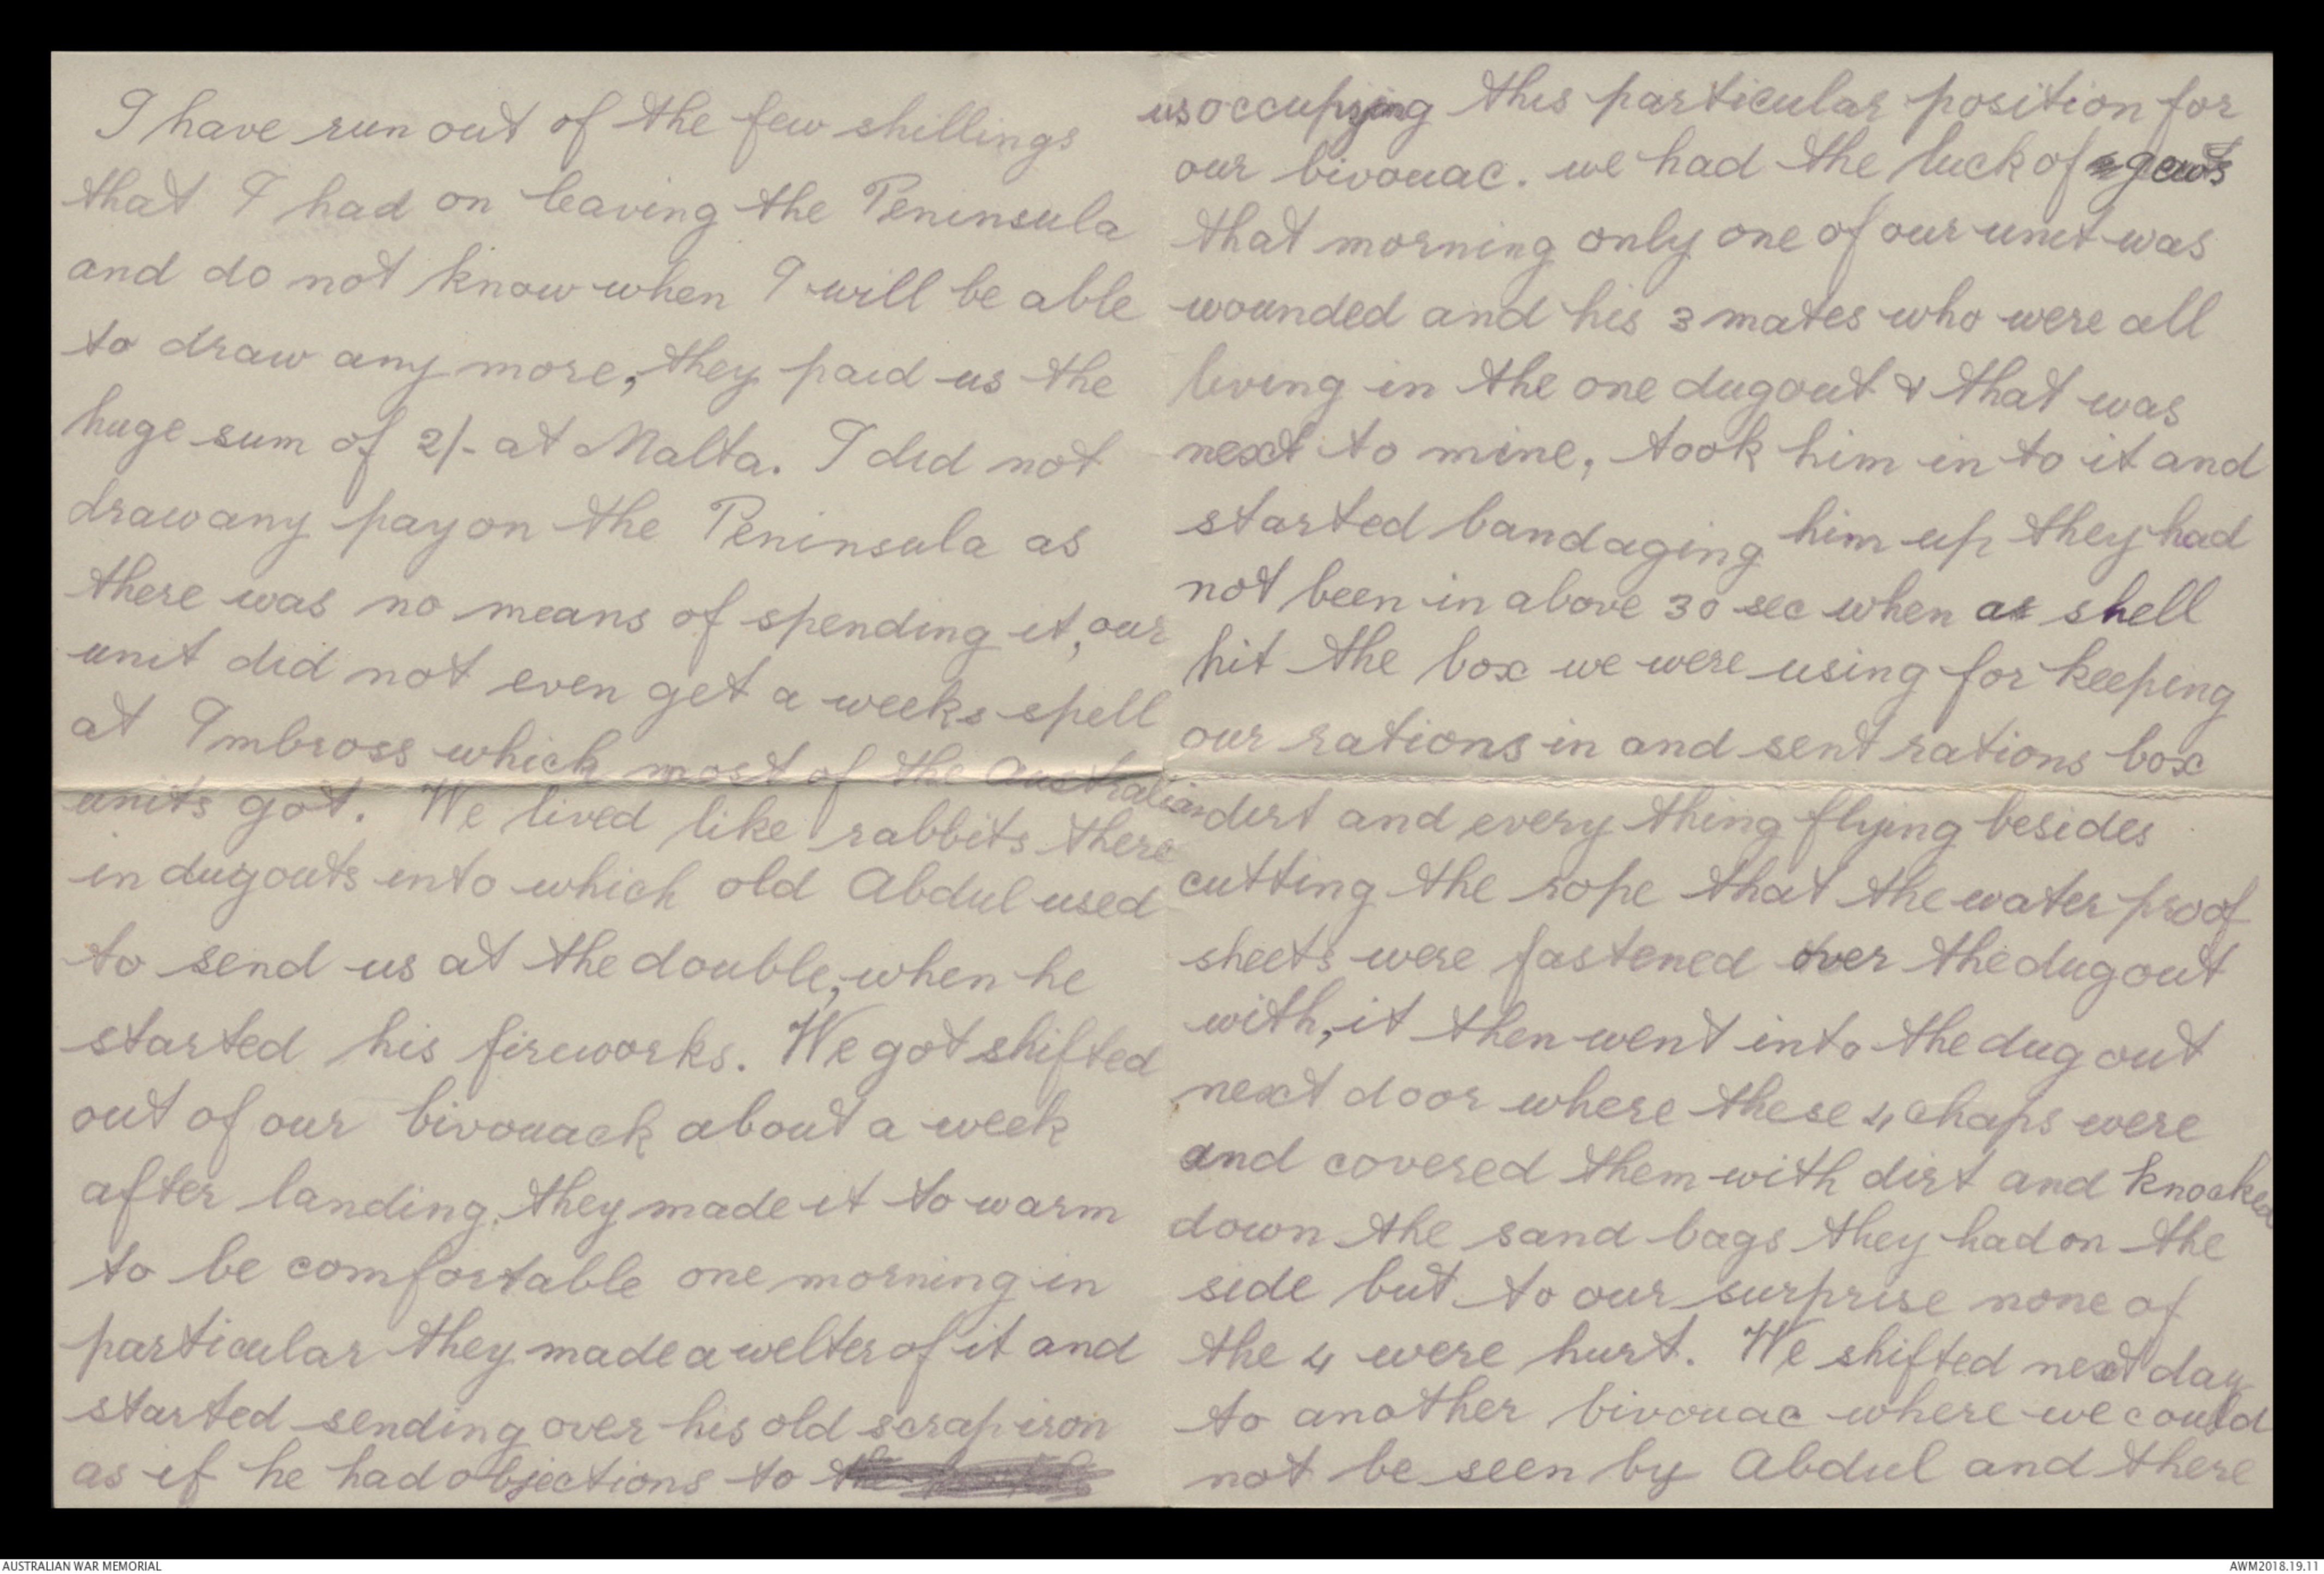 I have run out of the few shillings
that I had on leaving the Peninsula
and do not know when I will be able
to draw any more, they paid us the
huge sum of 2/- at Malta. I did not
draw any pay on the Peninsula as
there was no means of spending it, our
unit did not even get a weeks spell
at Imbross which most of the Australian
units got. We lived like rabbits there
in dugouts into which old Abdul used
to send us at the double, when he
started his fireworks. We got shifted
out of our bivouack about a week
after landing, they made it to warm
to be comfortable one morning in
particular they made a welter of it and
started sending over his old scrap iron
as if he had objections to
us occupying this particular position for
our bivouac. we had the luck of
that morning only one of our unit was
wounded and his 3 mates who were all
living in the one dugout & that was
next to mine, took him in to it and
started bandaging him up they had
not been in above 30 sec when a shell
hit the box we were using for keeping
our rations in and sent rations box
dirt and every thing flying besides
cutting the rope that the water proof
sheets were fastened over the dugout
with, it then went into the dug out
next door where these 4 chaps were
and covered them with dirt and knocked
down the sand bags they had on the
side but to our surprise none of
the 4 were hurt. We shifted next day
to another bivouac where we could
not be seen by Abdul and there
AUSTRALIAN WAR MEMORIAL
AWM2018.19.11